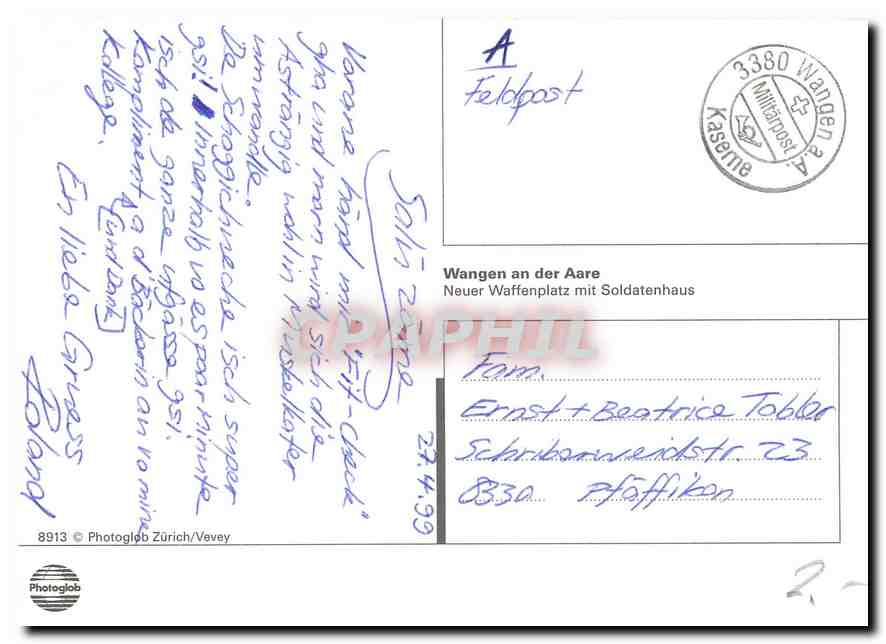 27.4.99
Salü zäme
Vorane händ mir "Fit-Check"
gha und morn wird sich die
Asträngig wohl in Muskelkater
umwandle.
De Schoggichueche isch super
gsi! Innerhalb vo es paar minute
isch de ganze ufgässe gsi.
Kompliment a d'Bäckerin au vo mine
(und Dank)
Kollege.
En liebe Gruess
Roland
8913 © Photoglob Zürich/Vevey
Photoglob
A
Feldpost
3380 Wangen a.A.
Militärpost
Kaserne
Wangen an der Aare
Neuer Waffenplatz mit Soldatenhaus
CPAPHIL
Fam.
Ernst + Beatrice Tobler
8330 Pfäffikon
2.-